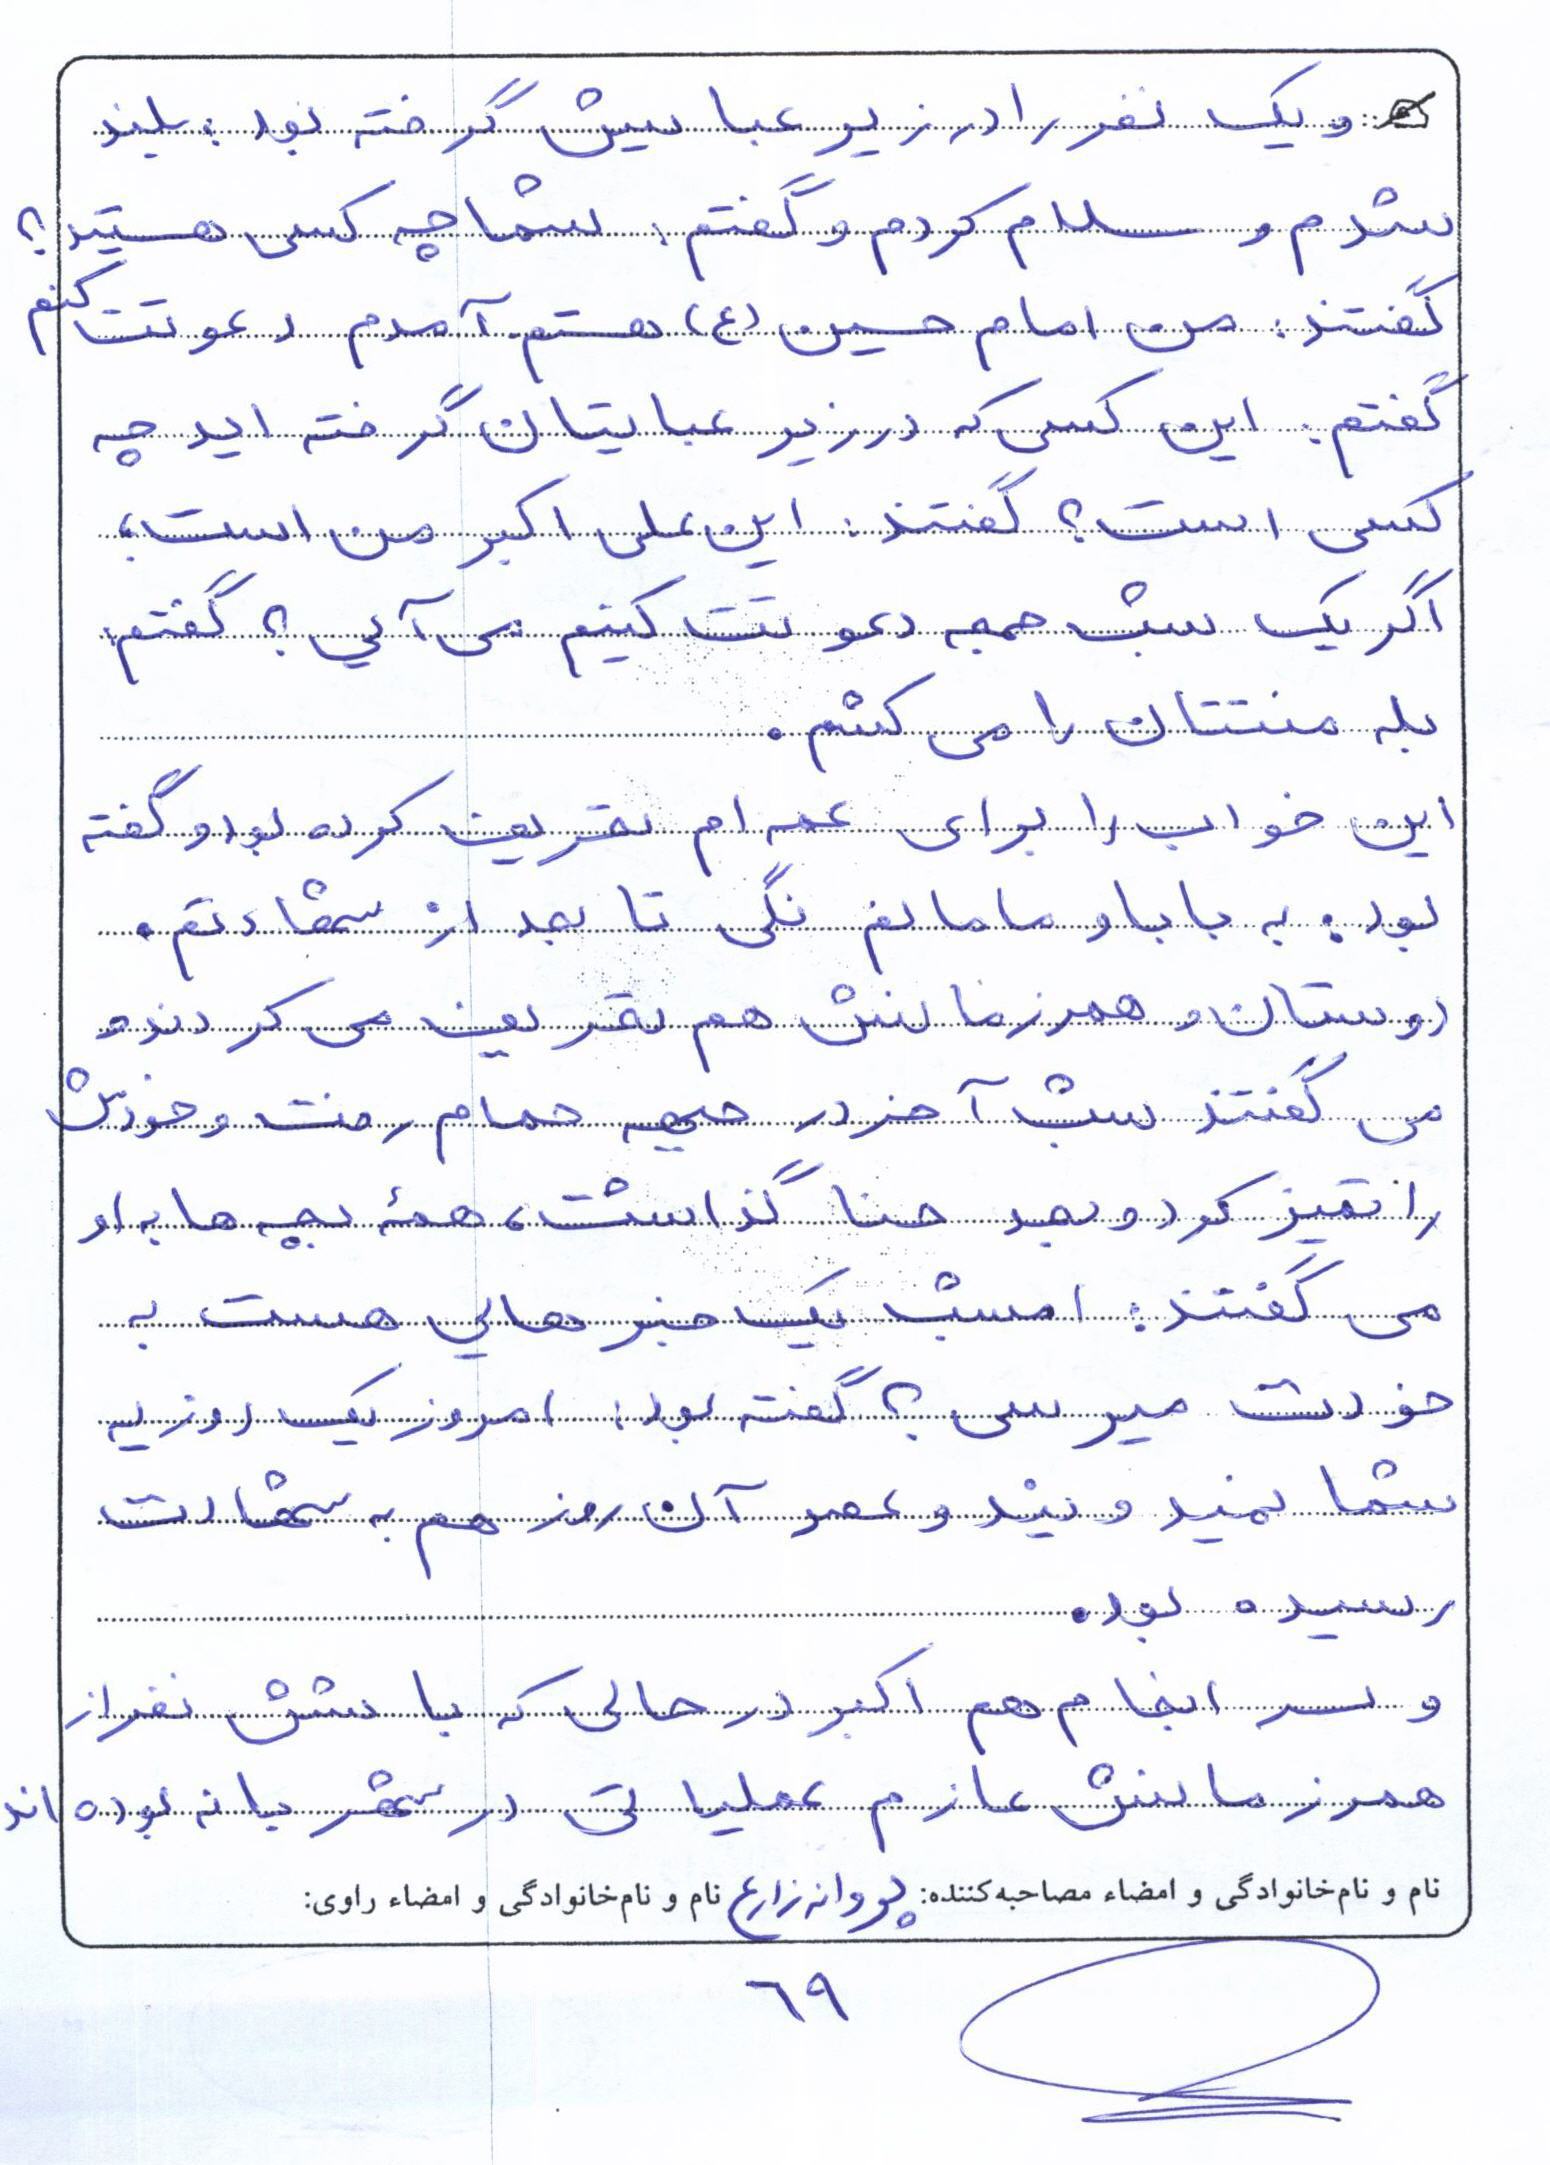 و یک نفر را در زیر عبایش گرفته بود؛ بلند
شدم و سلام کردم و گفتم: شما چه کسی هستید؟
گفتند: من امام حسین (ع) هستم. آمدم دعوتت کنم
گفتم: این کسی که در زیر عبایتان گرفته اید چه
کسی است؟ گفتند: این علی اکبر من است،
اگر یک شب جمعه دعوتت کنیم می آیی؟ گفتم:
بله منتتان را می کشم.
این خواب را برای عمه ام تعریف کرده بود و گفته
بود: به بابا و مامانم نگی تا بعد از شهادتم.
دوستان و همرزمانش هم تعریف می کردند و
می گفتند شب آخر در جبهه حمام رفت و خودش
را تمیز کرد و بعد حنا گذاشت، همهٔ بچه ها به او
می گفتند: امشب یک خبرهایی هست به
خودت میرسی؟ گفته بود: امروز یک روزیه
شما نمید ونید و عصر آن روز هم به شهادت
رسیده بود.
و سر انجام هم اکبر در حالی که با شش نفر از
همرزمانش عازم عملیاتی در شهر بانه بوده اند
نام و نام‌خانوادگی و امضاء مصاحبه‌کننده: پروانه زارع نام و نام‌خانوادگی و امضاء راوی:
٦٩